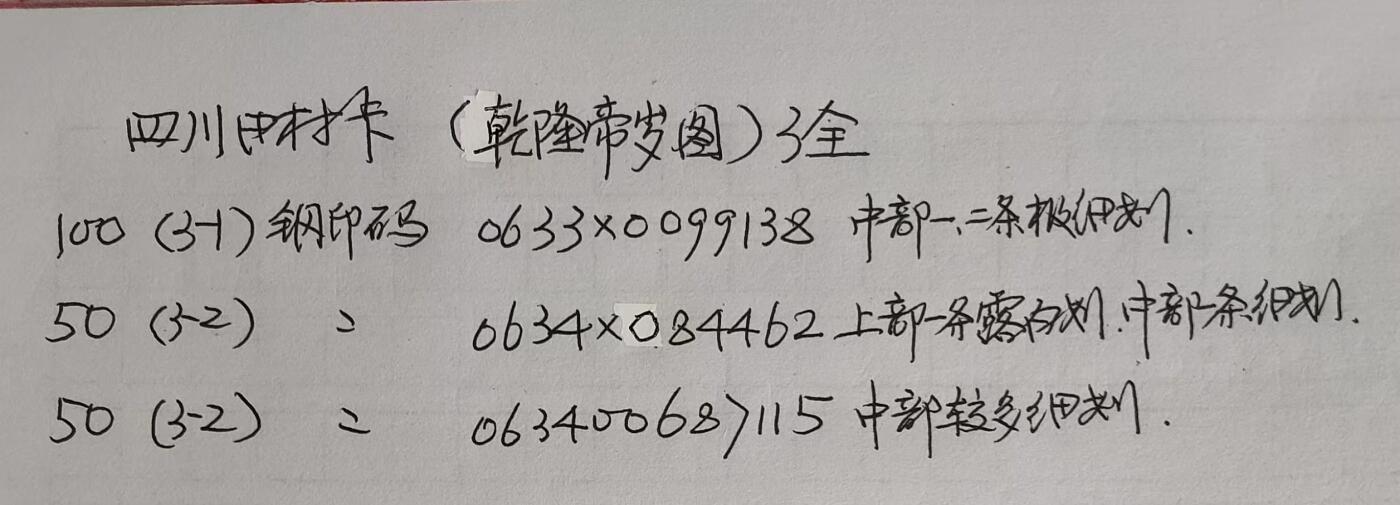 四川田村卡 （乾隆帝岁图）3全
100 (3-1) 钢印码 0633×0099138 中部一、二条极细划.
50 (3-2) 〃 0634×084462 上部一条露白划.中部一条细划.
50 (3-2) 〃 063400687115 中部较多细划.